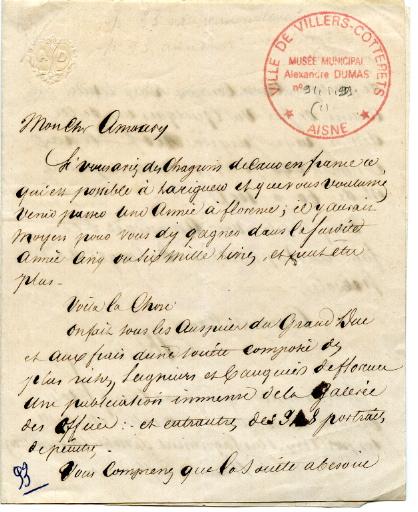 VILLE DE VILLERS-COTTERETS
MUSÉE MUNICIPAL
Alexandre DUMAS
n°
AISNE
Mon cher Amaury
Si vous aviez des chagrins de cœur en france ce
qui est possible à la rigueur et que vous voulussiez
venir passer une année à florence; il y aurait
moyen pour vous d'y gagner dans le susdite
année cinq ou six mille livres, et peut être
plus.
Voila la Chose
on fait sous les auspices du Grand Duc
et aux frais d'une société composé des
plus riches seigneurs et banquiers de florence
une publication immense de la Galerie
des offices: et entrautres des portraits
de peintres.
Vous comprenez que la Société a besoin